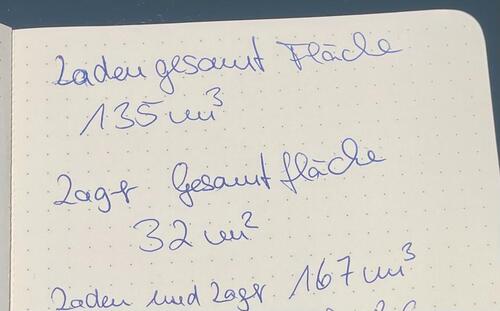 Laden gesamt Fläche
135 m³
Lager Gesamtfläche
32 m²
Laden und Lager 167 m³